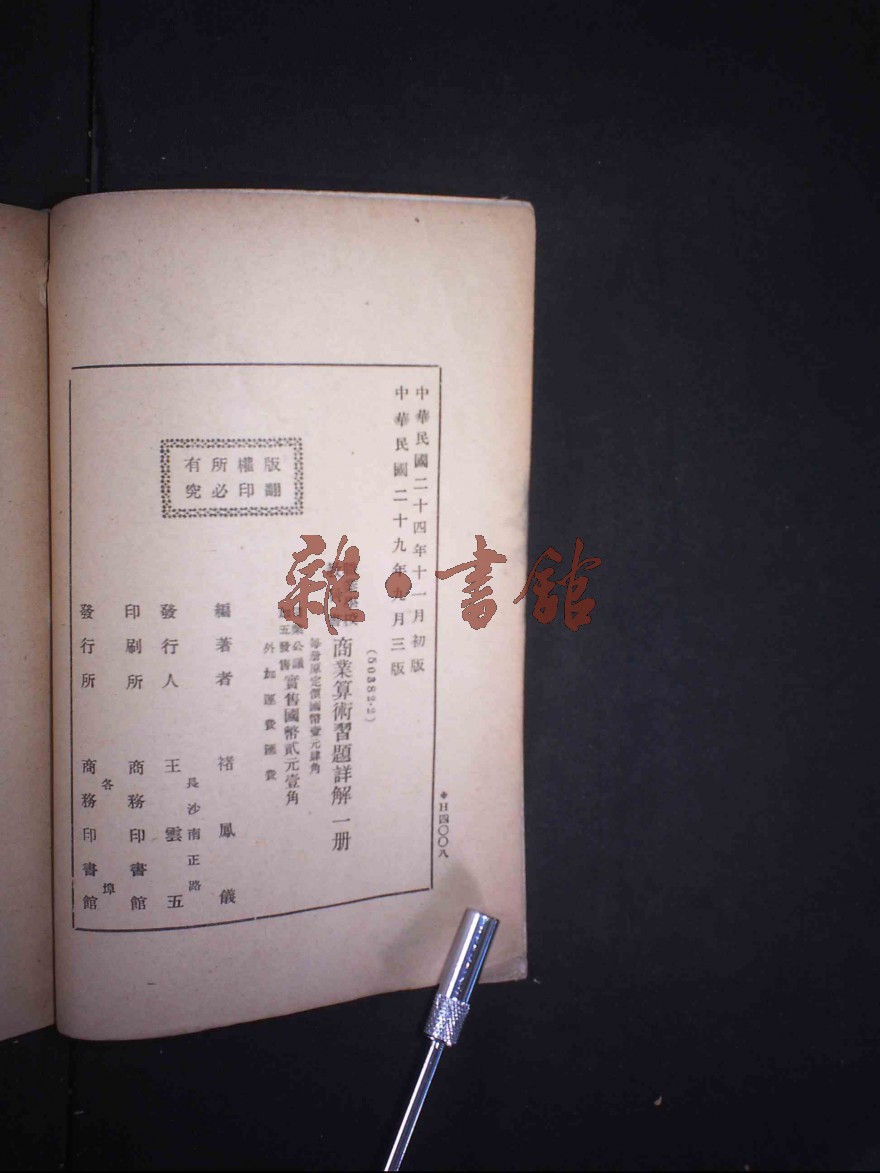 中華民國二十四年十一月初版
中華民國二十九年九月三版
(50382·2)
商業算術習題詳解一册
每册原定價國幣壹元肆角
公議
發售實售國幣貳元壹角
外加運費匯費
版權所有
翻印必究
編著者 褚鳳儀
長沙南正路
發行人 王雲五
印刷所 商務印書館
各埠
發行所 商務印書館
◆H四〇〇八
雜·書館